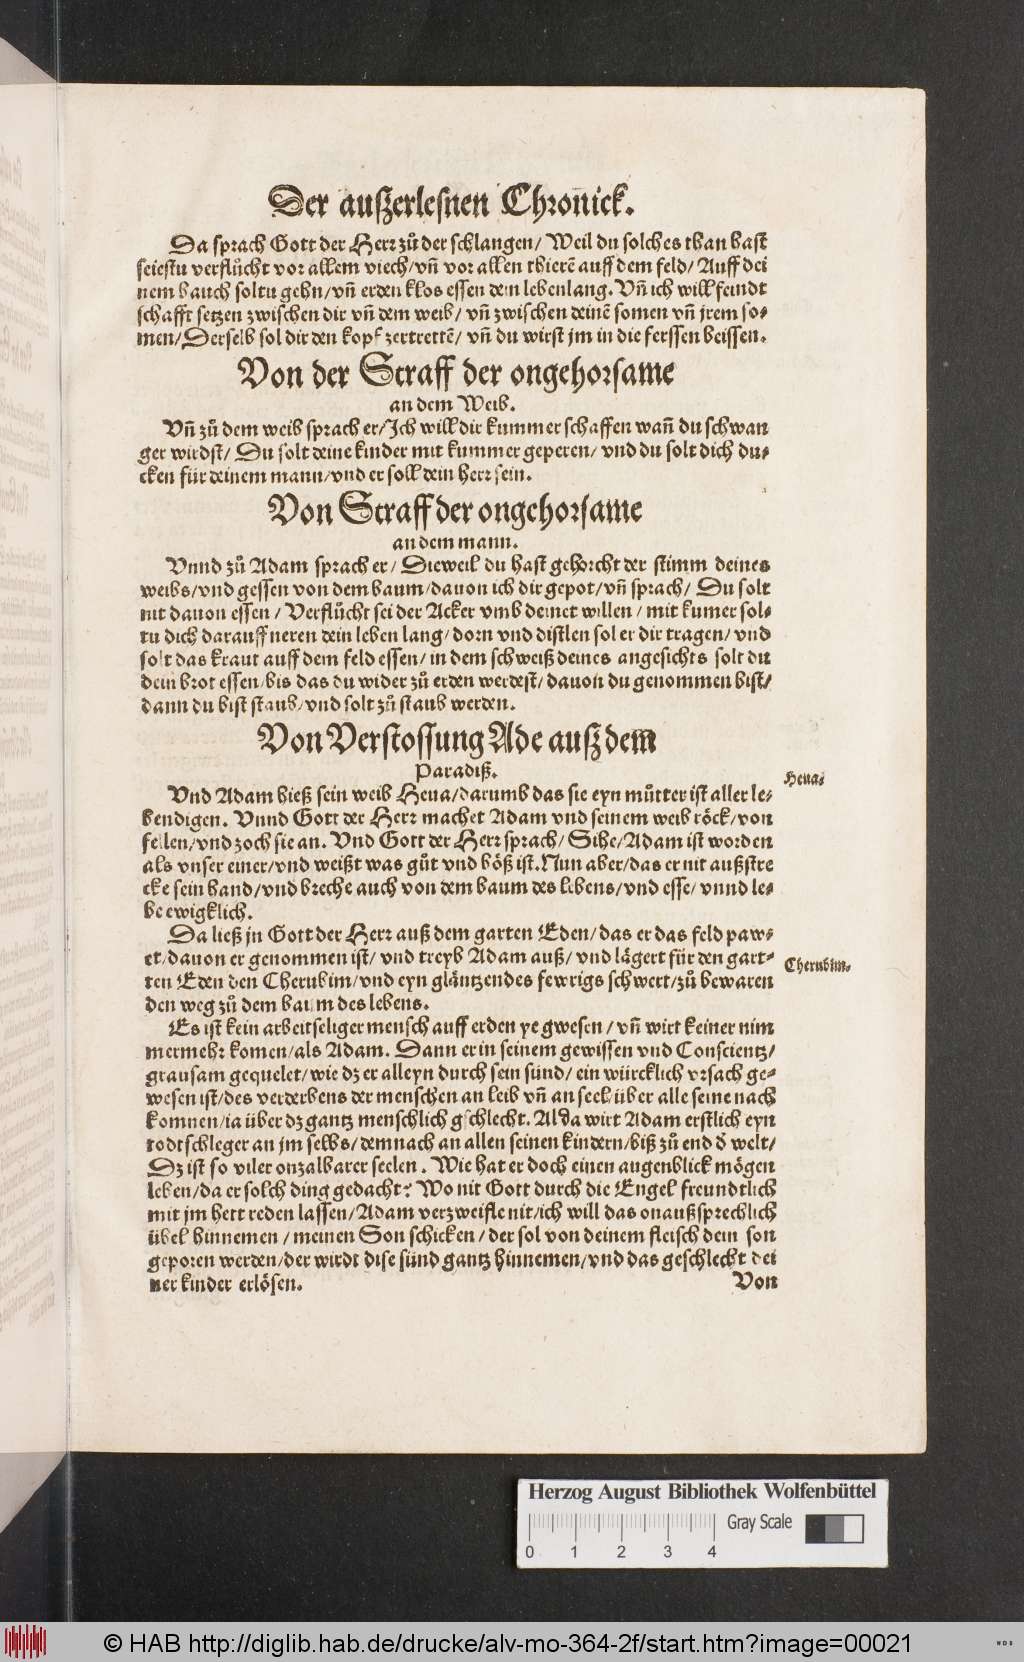 Der außerlesnen Chron̄ick.
Da sprach Gott der Herr zů der schlangen/ Weil du solches than hast
seiestu verflůcht vor allem viech/vn̄ vor allen thierē auff dem feld/ Auff dei
nem bauch soltu gehn/vn̄ erden klos essen dein lebenlang. Vn̄ ich will feindt
schafft setzen zwischen dir vn̄ dem weib/ vn̄ zwischen deinē somen vn̄ jrem so-
men/Derselb sol dir den kopf zertrettē/ vn̄ du wirst jm in die ferssen beissen.
Von der Straff der ongehorsame
an dem Weib.
Vn̄ zů dem weib sprach er/Ich will dir kummer schaffen wan̄ du schwan
ger wirdst/ Du solt deine kinder mit kummer geperen/ vnd du solt dich du-
cken für deinem mann/vnd er soll dein herr sein.
Von Straff der ongehorsame
an dem mann.
Vnnd zů Adam sprach er/ Dieweil du hast gehorcht der stimm deines
weibs/vnd gessen von dem baum/dauon ich dir gepot/vn̄ sprach/ Du solt
nit dauon essen/ Verflůcht sei der Acker vmb deinet willen/ mit kumer sol-
tu dich darauff neren dein leben lang/ dorn vnd distlen sol er dir tragen/ vnd
solt das kraut auff dem feld essen/ in dem schweiß deines angesichts solt du
dein brot essen/bis das du wider zů erden werdest/ dauon du genommen bist/
dann du bist staub/vnd solt zů staub werden.
Von Verstossung Ade auß dem
Paradiß.
Heua.
Vnd Adam hieß sein weib Heua/darumb das sie eyn můtter ist aller le-
bendigen. Vnnd Gott der Herr machet Adam vnd seinem weib röck/von
fellen/vnd zoch sie an. Vnd Gott der Herr sprach/ Sihe/Adam ist worden
als vnser einer/vnd weißt was gůt vnd böß ist. Nun aber/das er nit außstre
cke sein hand/vnd breche auch von dem baum des lebens/vnd esse/ vnnd le-
be ewigklich.
Da ließ jn Gott der Herr auß dem garten Eden/das er das feld paw-
et/dauon er genommen ist/ vnd treyb Adam auß/ vnd lägert für den gart-
Cherubim.
ten Eden den Cherubim/vnd eyn gläntzendes fewrigs schwert/zů bewaren
den weg zů dem baum des lebens.
Es ist kein arbeitseliger mensch auff erden ye gwesen/ vn̄ wirt keiner nim
mermehr komen/als Adam. Dann er in seinem gewissen vnd Conscientz/
grausam gequelet/wie dz er alleyn durch sein sünd/ ein würcklich vrsach ge-
wesen ist/des verderbens der menschen an leib vn̄ an seel/über alle seine nach
kommen/ia über dz gantz menschlich gschlecht. Alda wirt Adam erstlich eyn
todtschleger an jm selbs/demnach an allen seinen kindern/biß zů end d̄ welt/
Dz ist so viler onzalbarer seelen. Wie hat er doch einen augenblick mögen
leben/da er solch ding gedacht? Wo nit Gott durch die Engel freundtlich
mit jm hett reden lassen/Adam verzweifle nit/ich will das onaußsprechlich
übel hinnemen/ meinen Son schicken/ der sol von deinem fleisch dein son
geporen werden/der wirdt dise sünd gantz hinnemen/vnd das geschlecht dei
ner kinder erlösen.
Von
Herzog August Bibliothek Wolfenbüttel
Gray Scale
0 1 2 3 4
© HAB http://diglib.hab.de/drucke/alv-mo-364-2f/start.htm?image=00021